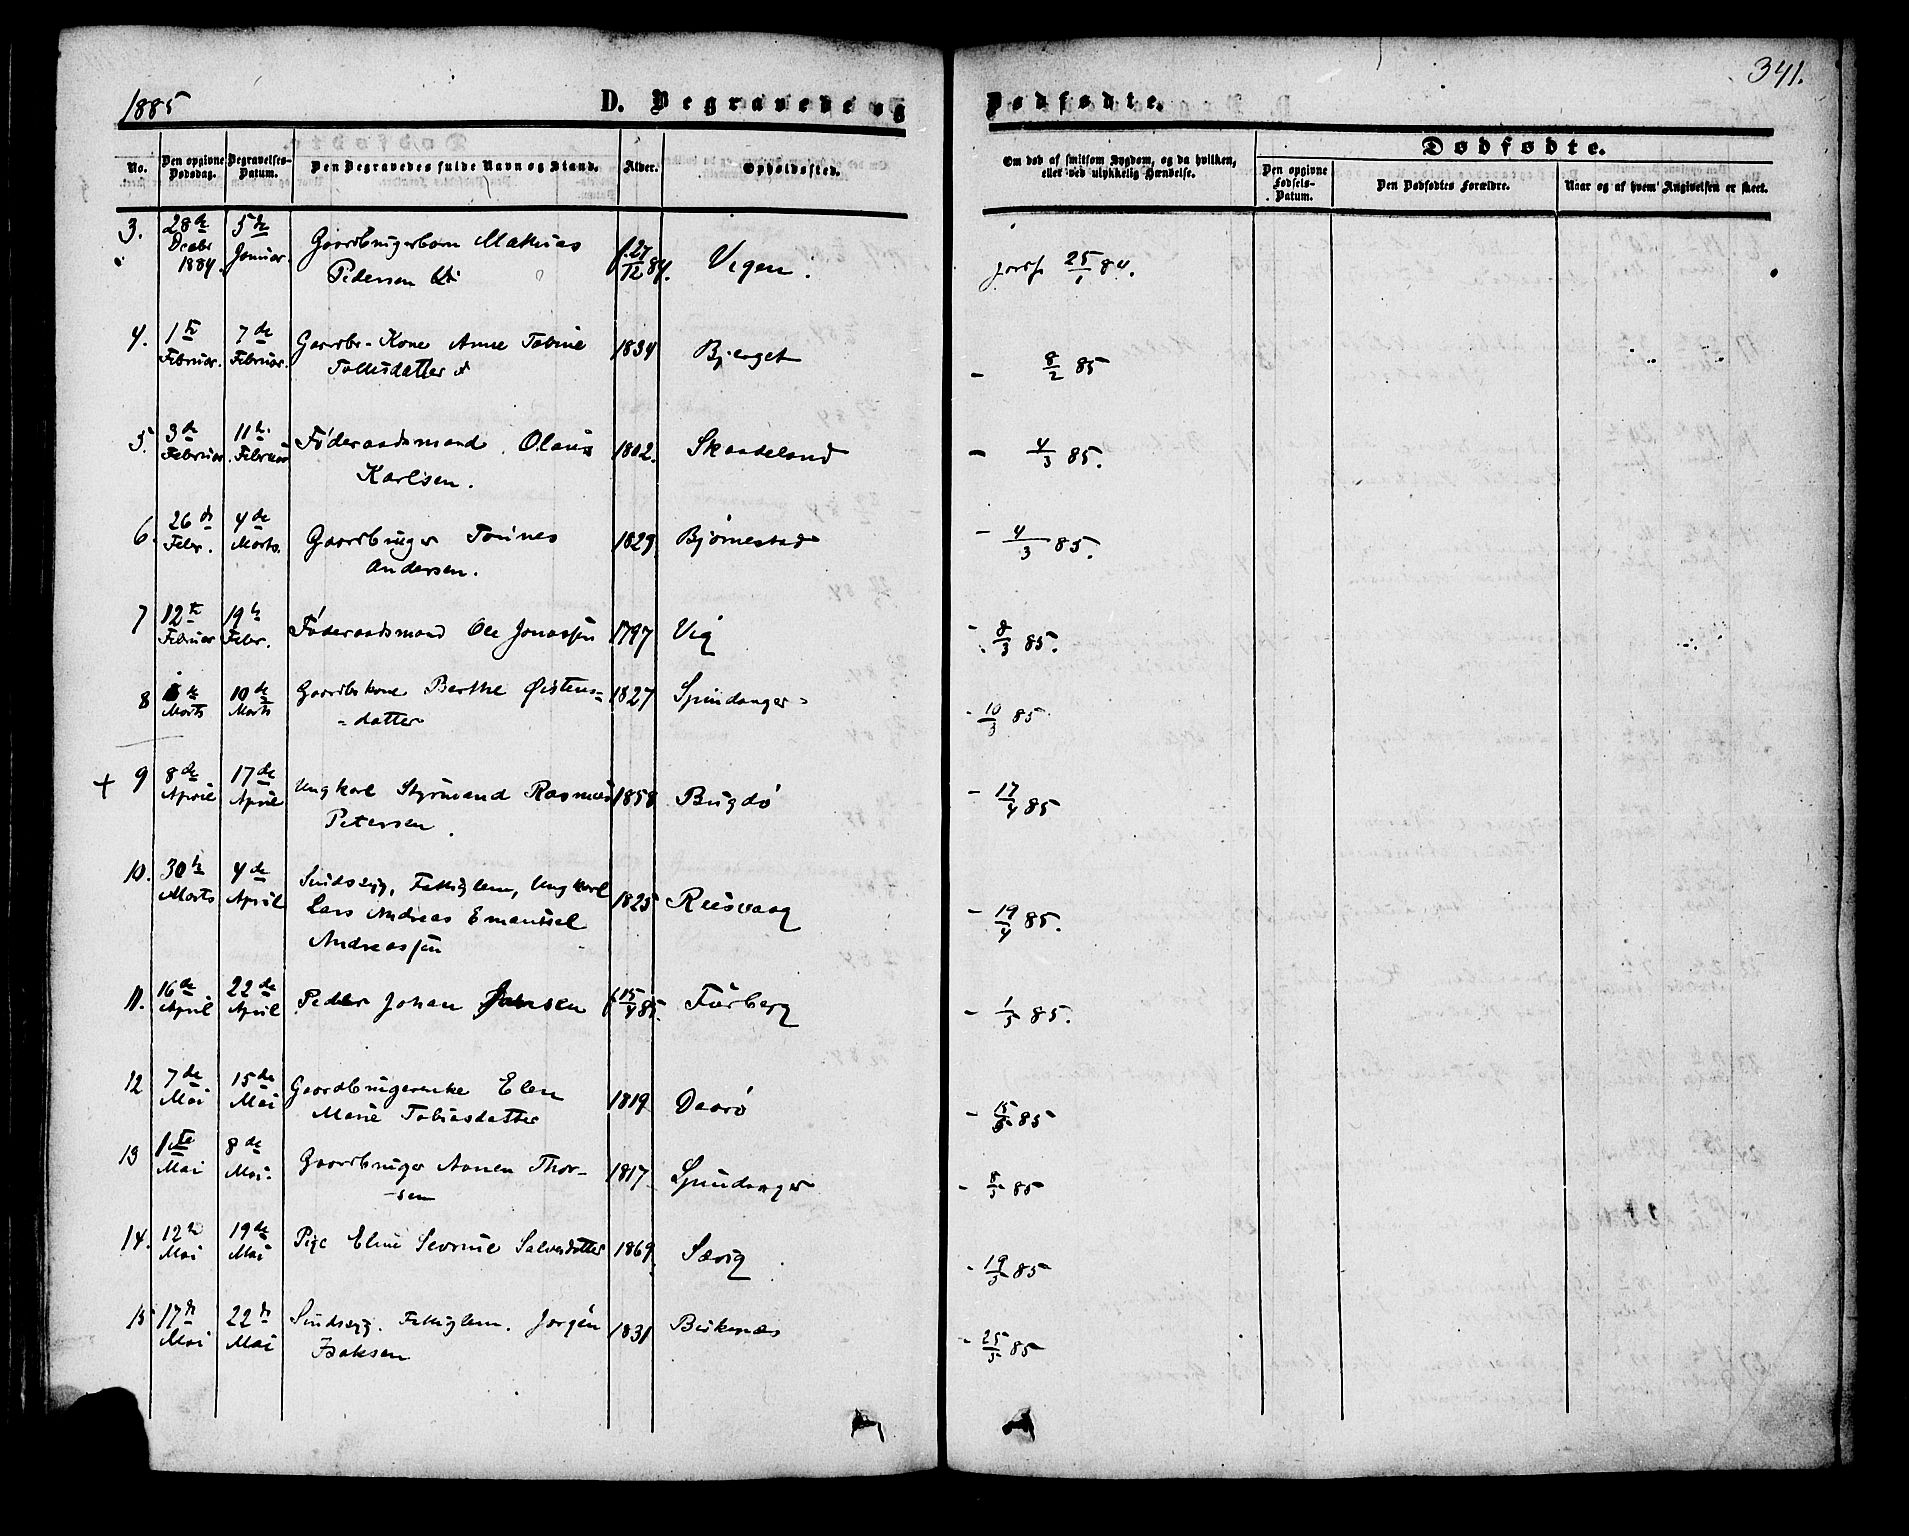 1885
D. Begravede og Dødfødte.
341.
No.
Den opgivne Dødsdag.
Begravelses-Datum.
Den Begravedes fulde Navn og Stand.
Alder.
Opholdssted.
Om død af smitsom Sygdom, og da hvilken, eller ved ulykkelig Hændelse.
Dødfødte.
Den opgivne Fødsels-Datum.
Den Dødfødtes Forældre.
Naar og af hvem Angivelsen er skeet.
3. 28de Decbr 1884. 5te Januar. Gaardbrugerbarn Mathias
Pedersen f. 27/12 84. Vigen. 84.
4. 1te Februar. 7de Februar. Gaardbr. Kone Anne Tobine
Tollisdatter 1834 Bjerget - 8/2 85
5. 3de Februar 11te Februar Føderaadsmand Olaus
Karlsen. 1802. Skaadeland - 4/3 85.
6. 26de Febr. 4de Marts. Gaardbruger Tønnes
Andersen. 1829 Bjørnestad - 4/3 85.
7 12te Februar 19de Febr. Føderaadsmand Ole Jonassen 1797 Vig - 8/3 85.
8 Marts 10de Marts Gaardbrkone Berthe Østens-
-datter 1827 Spindanger - 10/3 85
+ 9 8de April 17de April Ungkarl Styrmand Rasmus
Petersen. 1858 Bugdø - 17/4 85
10. 30te Marts 4de April Sindssyg, Fattiglem, Ungkarl
Lars Andreas Emanuel
Andreassen 1825 Reesvaag - 19/4 85.
11. 16de April 22de April Peder Johan Jansen f. 15/4 85. Furberg - 1/5 85.
12 7de Mai 15de Mai Gaardbrugerenke Elen
Marie Tobiasdatter 1819 Daarø - 15/5 85
13 1te Mai 8de Mai. Gaardbruger Aanen Thor-
-sen 1817 Spindanger - 8/5 85
14. 12te Mai 19de Mai Pige Eline Severine Salvesdatter 1869. Særig - 19/5 85
15 17de Mai 22de Mai Sindssyg. Fattiglem. Jørgen
Isaksen 1831 Birkenæs - 25/5 85